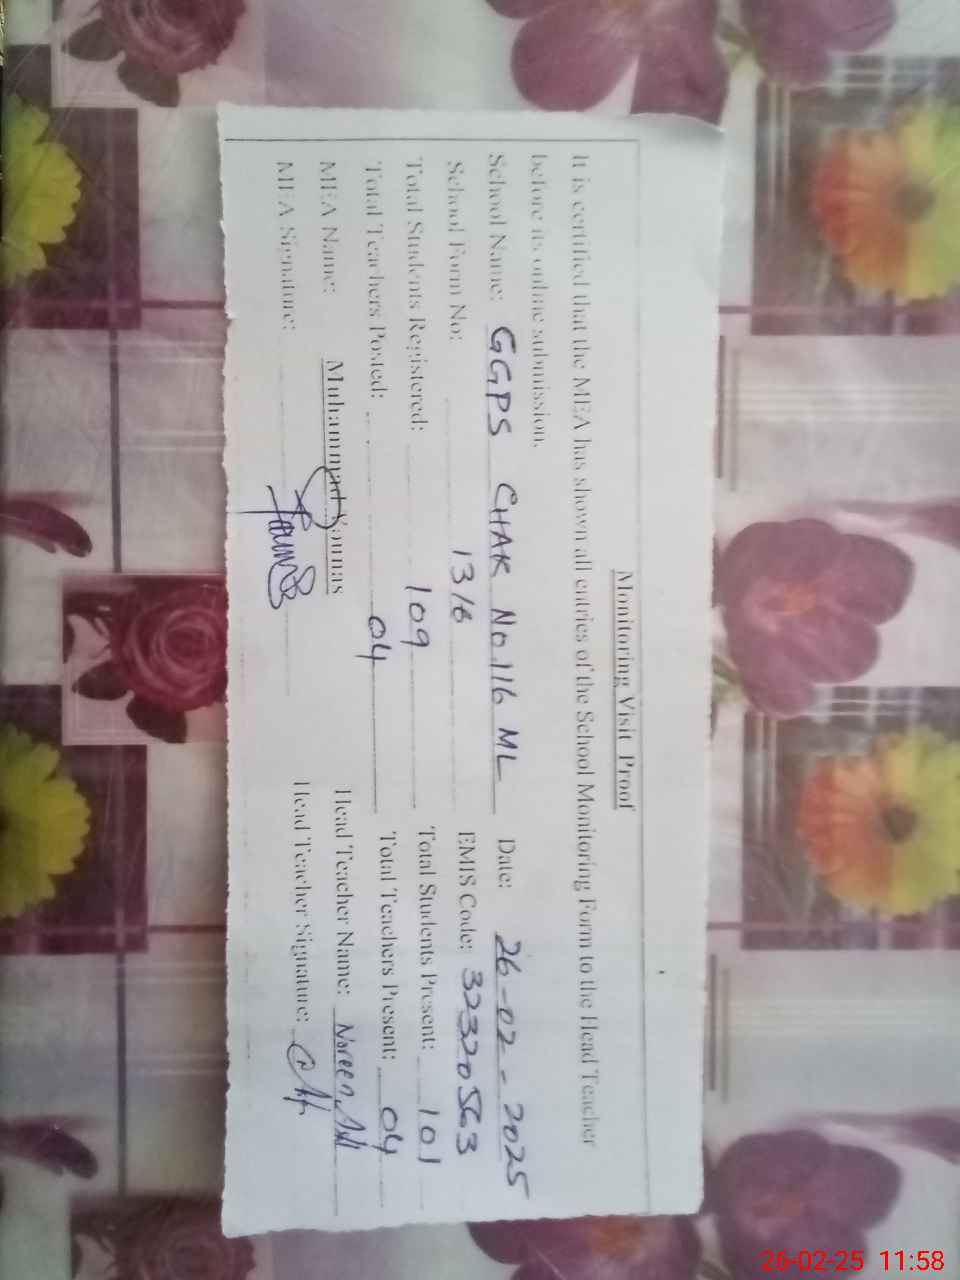 Monitoring Visit Proof
It is certified that the MEA has shown all entries of the School Monitoring Form to the Head Teacher
before its online submission.
School Name: GGPS CHAK No.116 ML Date: 26-02-2025
School Form No: 1316 EMIS Code: 32320563
Total Students Registered: 109 Total Students Present: 101
Total Teachers Posted: 04 Total Teachers Present: 04
MEA Name: Muhammad Younas Head Teacher Name: Noreen
MEA Signature: Head Teacher Signature:
26-02-25 11:58